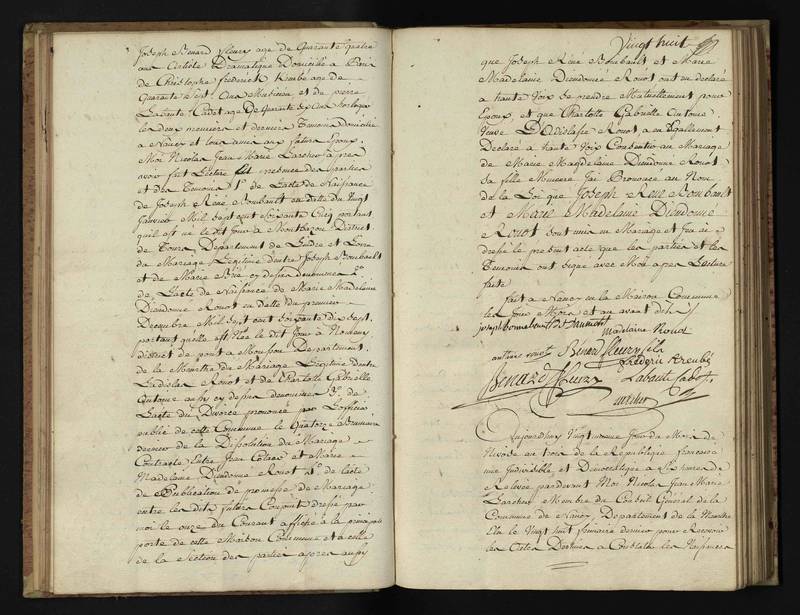 Joseph Benard fleury age de Quarante quatre
ans Artiste Dramatique Domicilié a Paris
de Christophe frederick Kreubé age de
Quarante Sept ans Musicien et du pierre
Labauté Cadet age De quarante six ans horloger
les deux premiers et dernier Temoins domicilié
a Nancy et tous amis aux futurs Epoux.
Moi Nicolas Jean Marie Larcher après
avoir fait Lecture en presence des parties
et des Temoins 1° de Lacte de Naissance
de Joseph Rene Boubault en datte du Vingt
Janvier Mil Sept cent soixante Cinq portant
quil est né le dit jour a Montbazon District
de Tours Departement de Lindre et Loire
du Mariage Legitime dentre Joseph Boubault
et de Marie cy dessus denommes 2°
de Lacte de Naissance de Marie Madelaine
Dieudonne Rouot en datte du premier
Decembre Mil Sept cent soixante dix Sept
portant quelle est Née le dit Jour a Nomeny
district de pont a Mousson Departement
de la Meurthe du Mariage Legitime dentre
Ladislas Rouot et de Charlotte Gabrielle
Antoine aussy cy dessus denommes 3° de
Lacte du Divorce prononcé par Lofficier
public de cette Commune le Quatorze Brumaire
dernier de la Dissolution du Mariage
Contracte Entre Jean Colas et Marie
Madelaine Dieudonne Rouot 4° de lacte
de Publication de promesse de Mariage
entre les dits futurs Conjoints dressé par
moi le onze du Courant affiché a la principale
porte de cette Maison Commune et a celle
de la Section des parties apres aussy
Vingt huit
que Joseph Rene Boubault et Marie
Madelaine Dieudonné Rouot ont eu declaré
a haute Voix se prendre Mutuellement pour
Epoux et que Charlotte Gabrielle Antoine
Veuve Ladislas Rouot a eu Egallement
Declaré a haute Voix Consentir au Mariage
de Marie Magdelaine Dieudonné Rouot
sa fille Mineure Jai Prononcé au Nom
de la Loi que Joseph Rene Boubault
et Marie Madelaine Dieudonne
Rouot sont unis en Mariage et jai
dressé le present acte que les parties et les
Temoins ont signé avec Moi apres Lecture
faite
fait a Nancy en la Maison Commune
les Jour Mois et an avant dits
madelaine Rouot
antoine rouot Bénard fleury fils
frederic Kreubé
Benard fleury Labauté Cadet
Larcher
Aujourdhuy Vingt Jour du Mois de
Nivose an trois de la Republique francaise
une Indivisible et Democratique a Six heures de
Relevée pardevant Moi Nicolas Jean Marie
Larcher Membre du Conseil Général de la
Commune de Nancy Departement de la Meurthe
Elu le Vingt huit frimaire dernier pour Recevoir
les Actes Destinés a Constater les Naissances